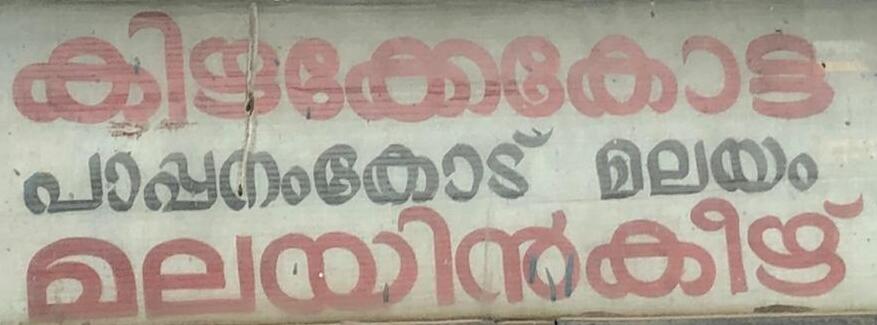 കിഴക്കേകോട്ട
പാപ്പനംകോട് മലയം
മലയിൻകീഴ്